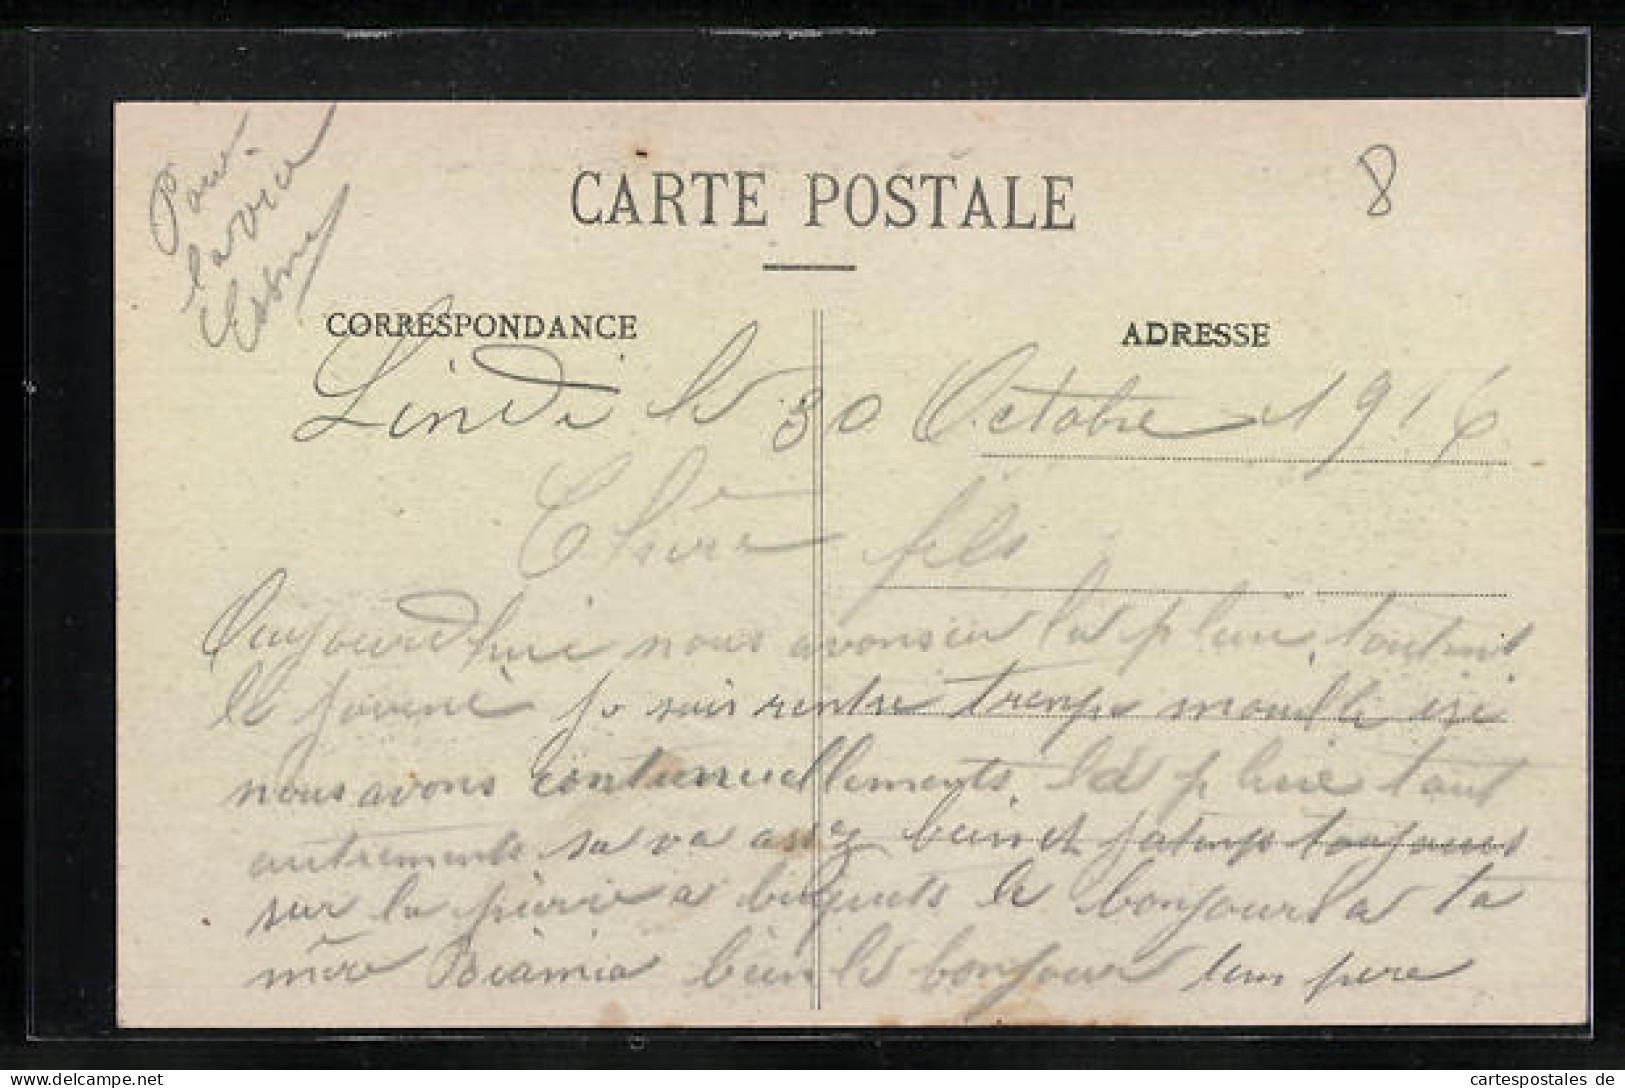 Pour
la
CARTE POSTALE
8
CORRESPONDANCE
ADRESSE
Lindi le 30 Octobre 1916
Chère fils
Aujourdhui nous avons eu la pluie toutent
le jovené je suis rentre trempe mouille ici
nous avons continuellements la pluie tout
autrements sa va asez bien et jatemps toujours
sur la pierre a briquets le bonjours a ta
mère bien le bonjour ton pere
cartespostales de